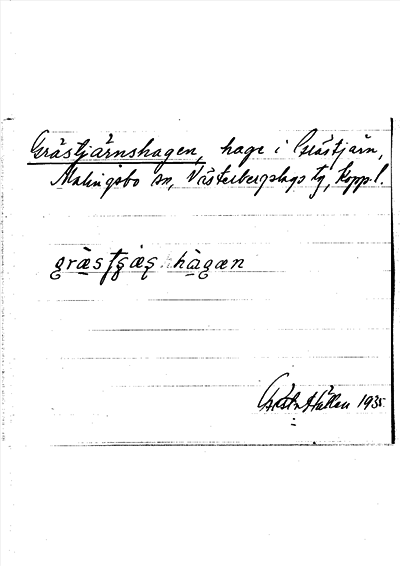 Grästjärnshagen, hage i Grästjärn,
Malingsbo sn, Västerbergslags tg, Kopp.l.
hagæn
Gösta Hallen 1935